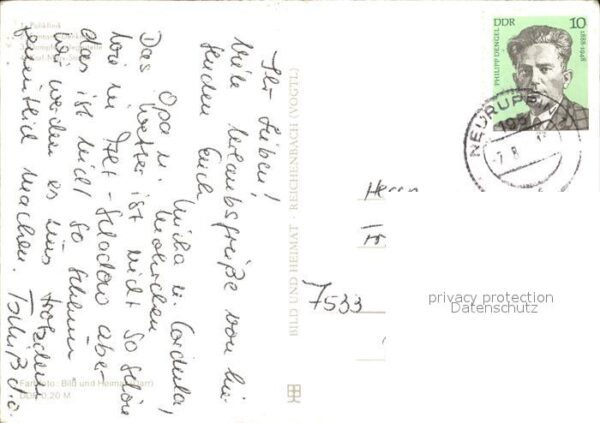 Ihr Lieben!
Viele Urlaubsgrüße von hie-
senden Euch
Micha u. Cordula,
Opa u. Mohrchen
Das Wetter ist nicht so schön
wie in Alt-Schadow aber
das ist nicht so schlimm.
Wir werden es uns trotzdem
gemütlich machen. Tschüß d.o.
BILD UND HEIMAT REICHENBACH (VOGTL)
Farbfoto: Bild und Heimat
DDR 0,20 M
DDR 10
PHILIPP DENGEL 1888-1948
NEURUPPIN 1
195
-7.8
Herrn
7533
privacy protection
Datenschutz